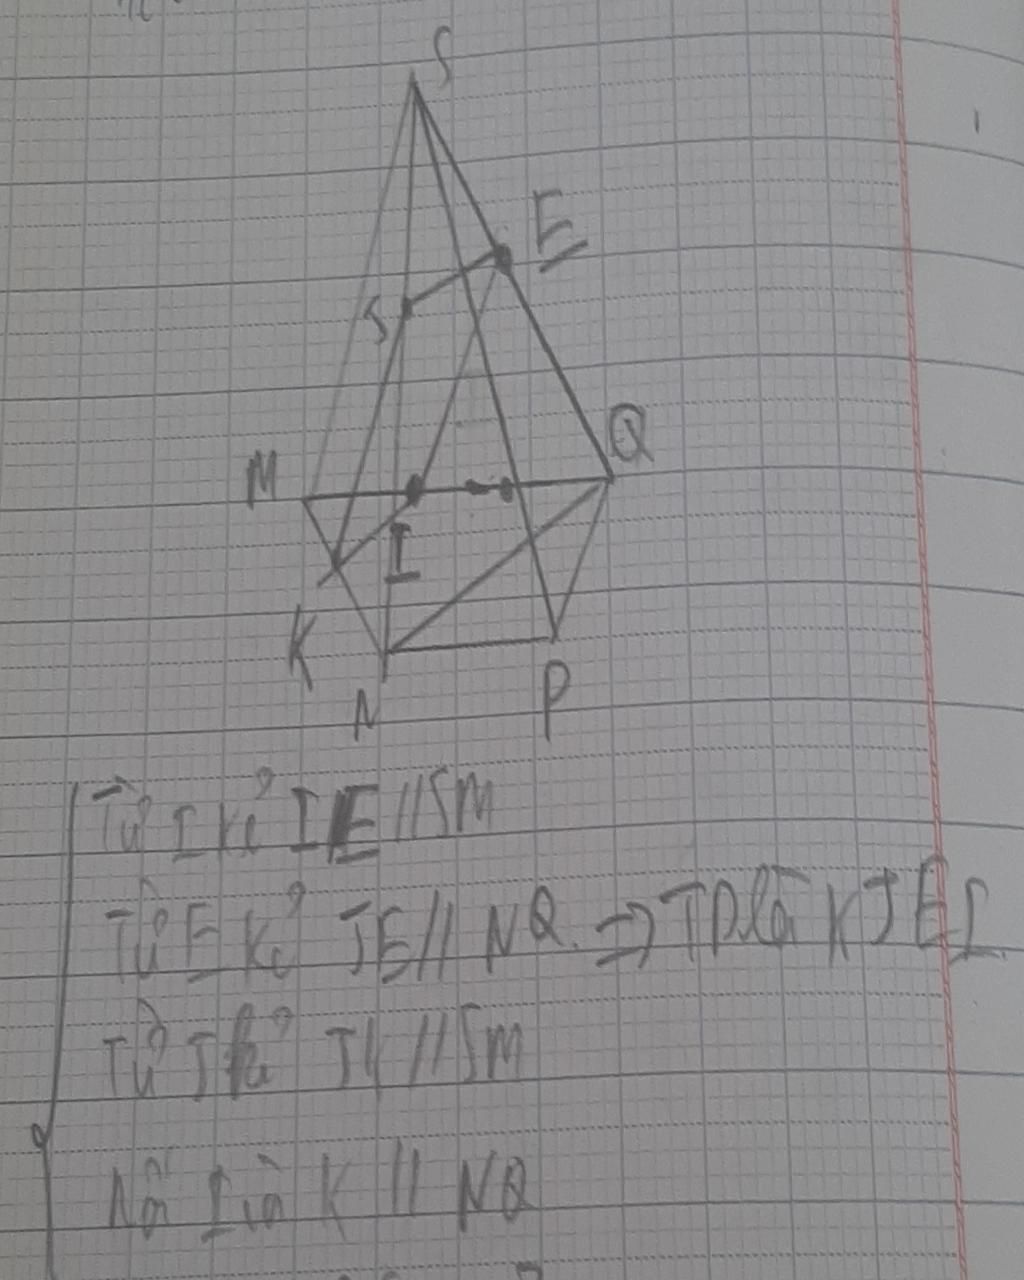 S
E
J
Q
M
I
K
N
P
Từ I kẻ IE // SM
Từ E kẻ JE // NQ. => TD là KJEI
Từ J kẻ JK // SM
Nối I và K // NQ